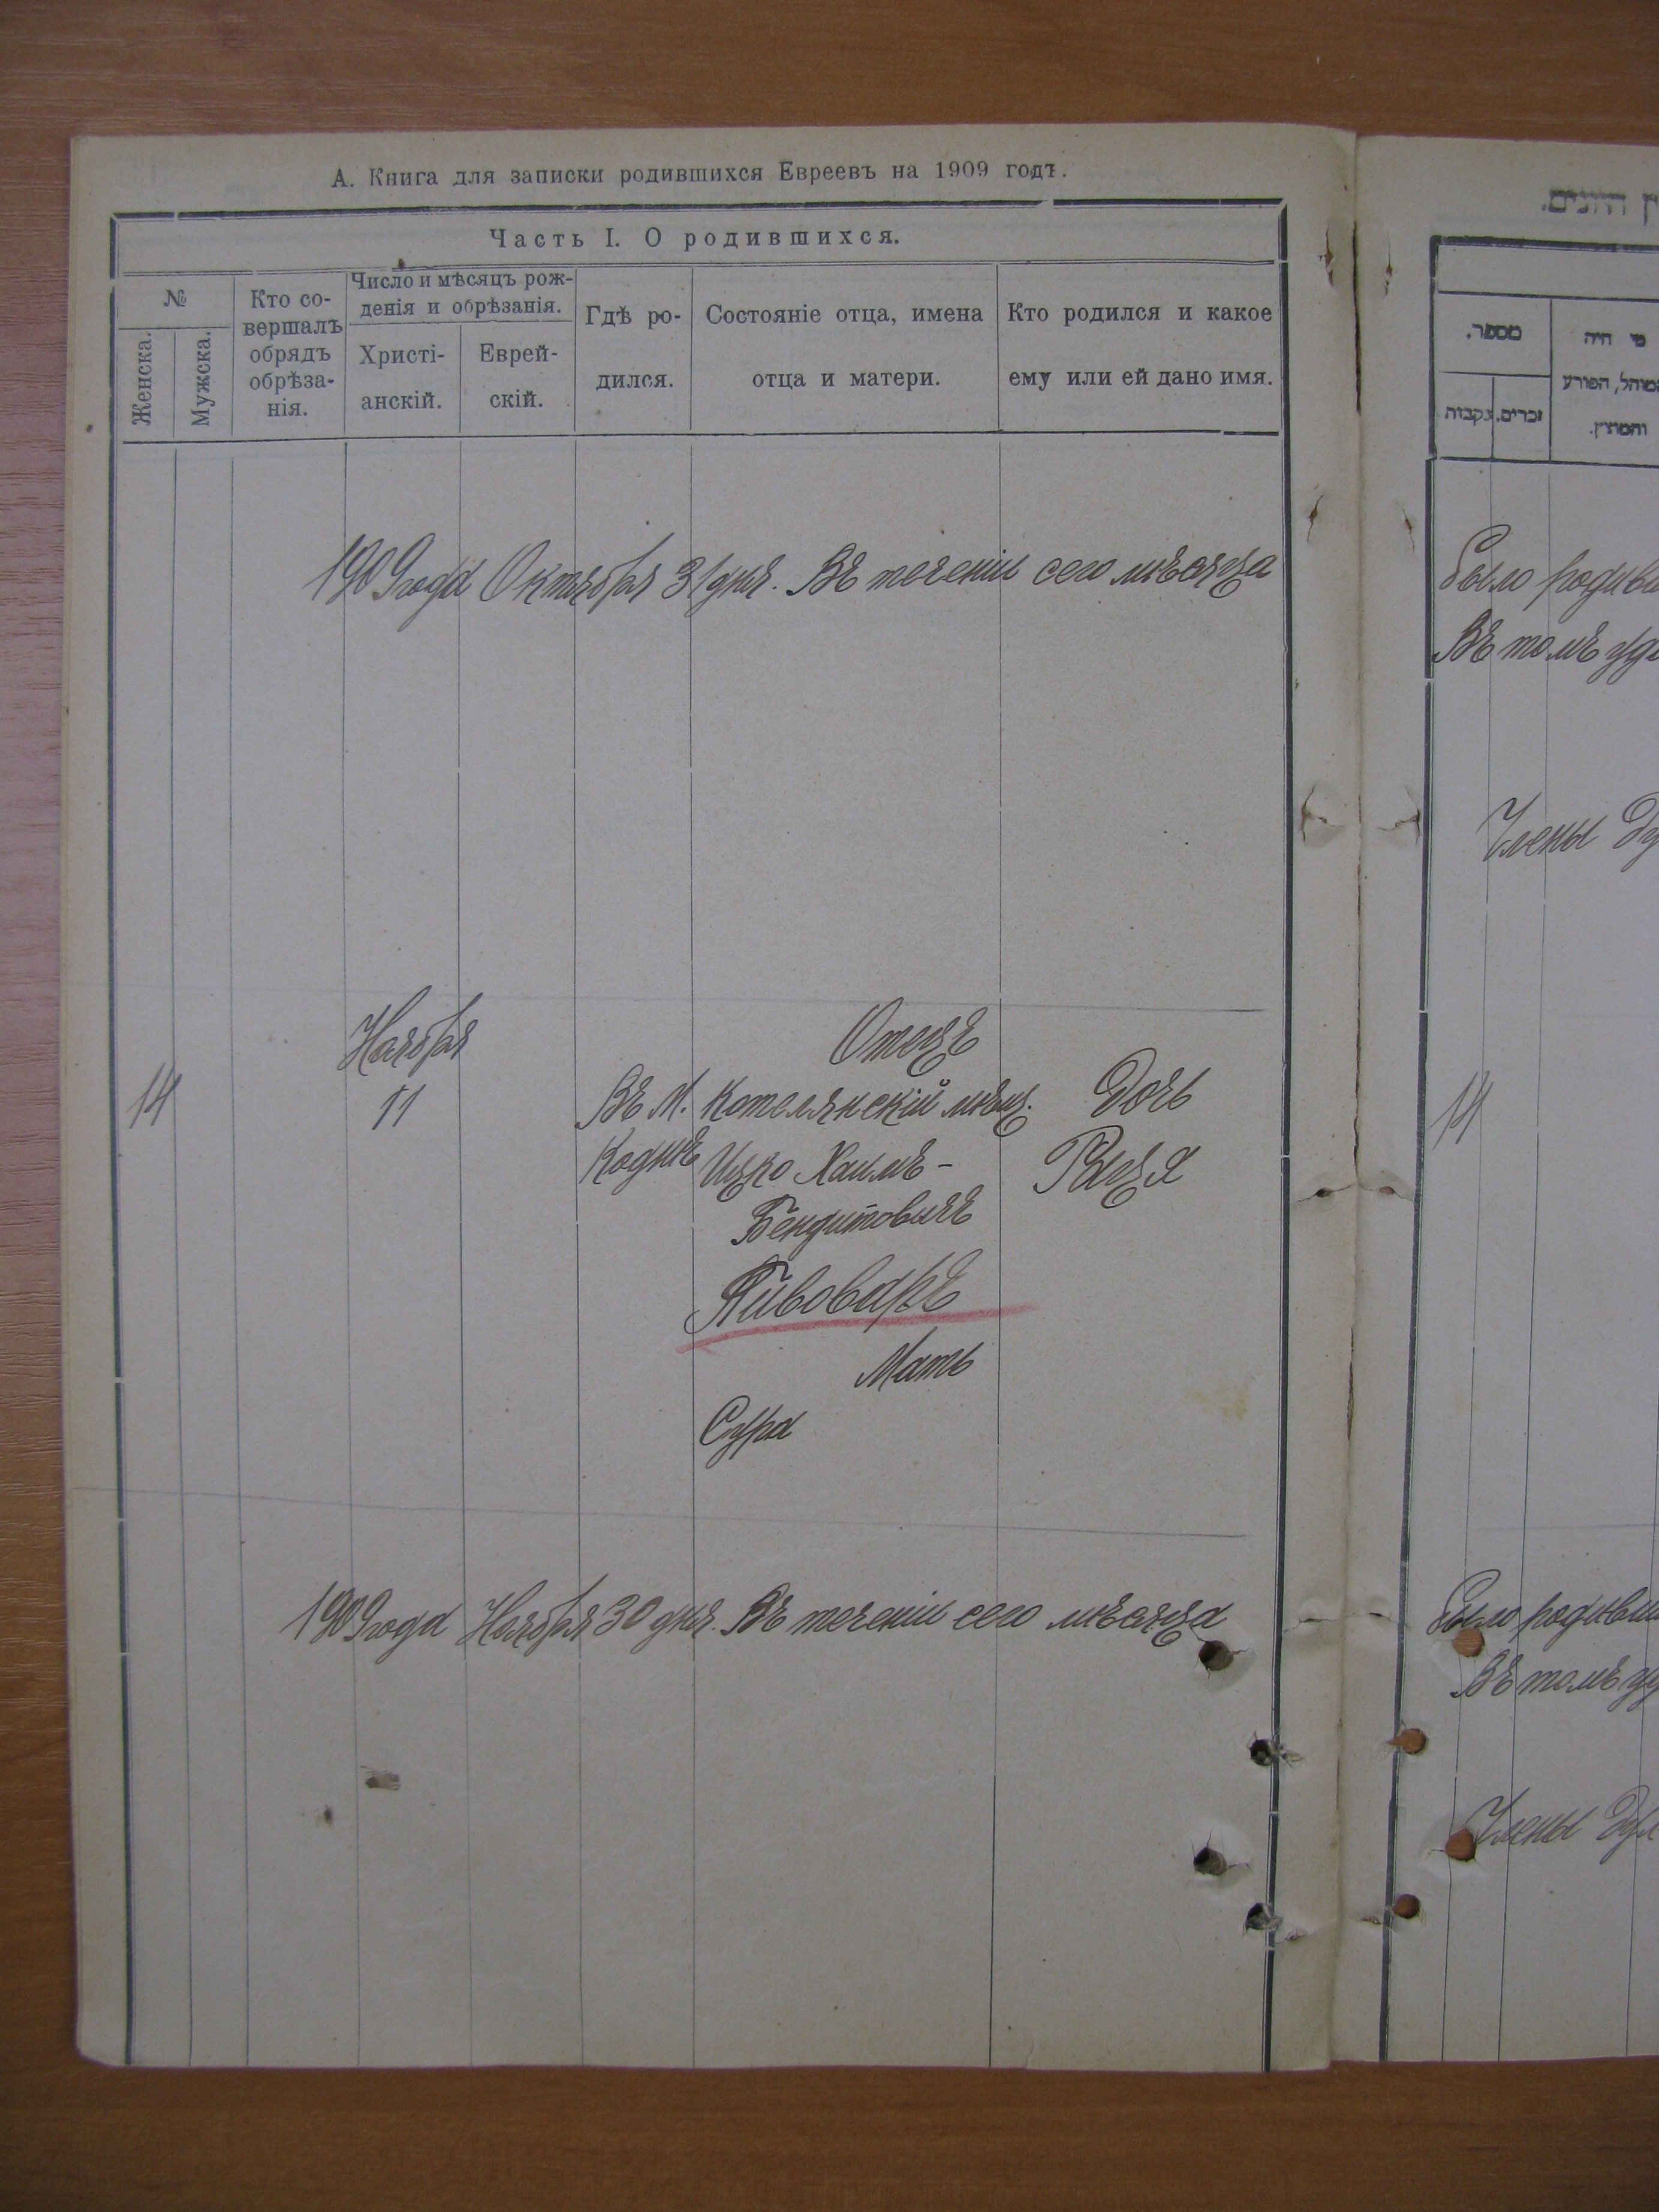 А. Книга для записки родившихся Евреевъ на 1909 годъ.
Часть I. О родившихся.
№
Женска.
Мужска.
Кто со-
вершалъ
обрядъ
обрѣза-
нія.
Число и мѣсяцъ рож-
денія и обрѣзанія.
Христі-
анскій.
Еврей-
скій.
Гдѣ ро-
дился.
Состояніе отца, имена
отца и матери.
Кто родился и какое
ему или ей дано имя.
1909 года Октября 31 дня. Въ теченіи сего мѣсяца
Ноября
Отецъ
14
11
Въ М.
Котелянскій мѣщ.
Дочь
Кодни
Ицко Хаимъ-
Рыся
Бендитовичъ
Пивоваръ
Мать
Сура
1909 года Ноября 30 дня. Въ теченіи сего мѣсяца
מספר.
זכרים.
נקבות
מי היה
המוהל, הפורע
והמוצץ.
Было
Въ томъ
Члены
14
Было
Въ томъ
Члены